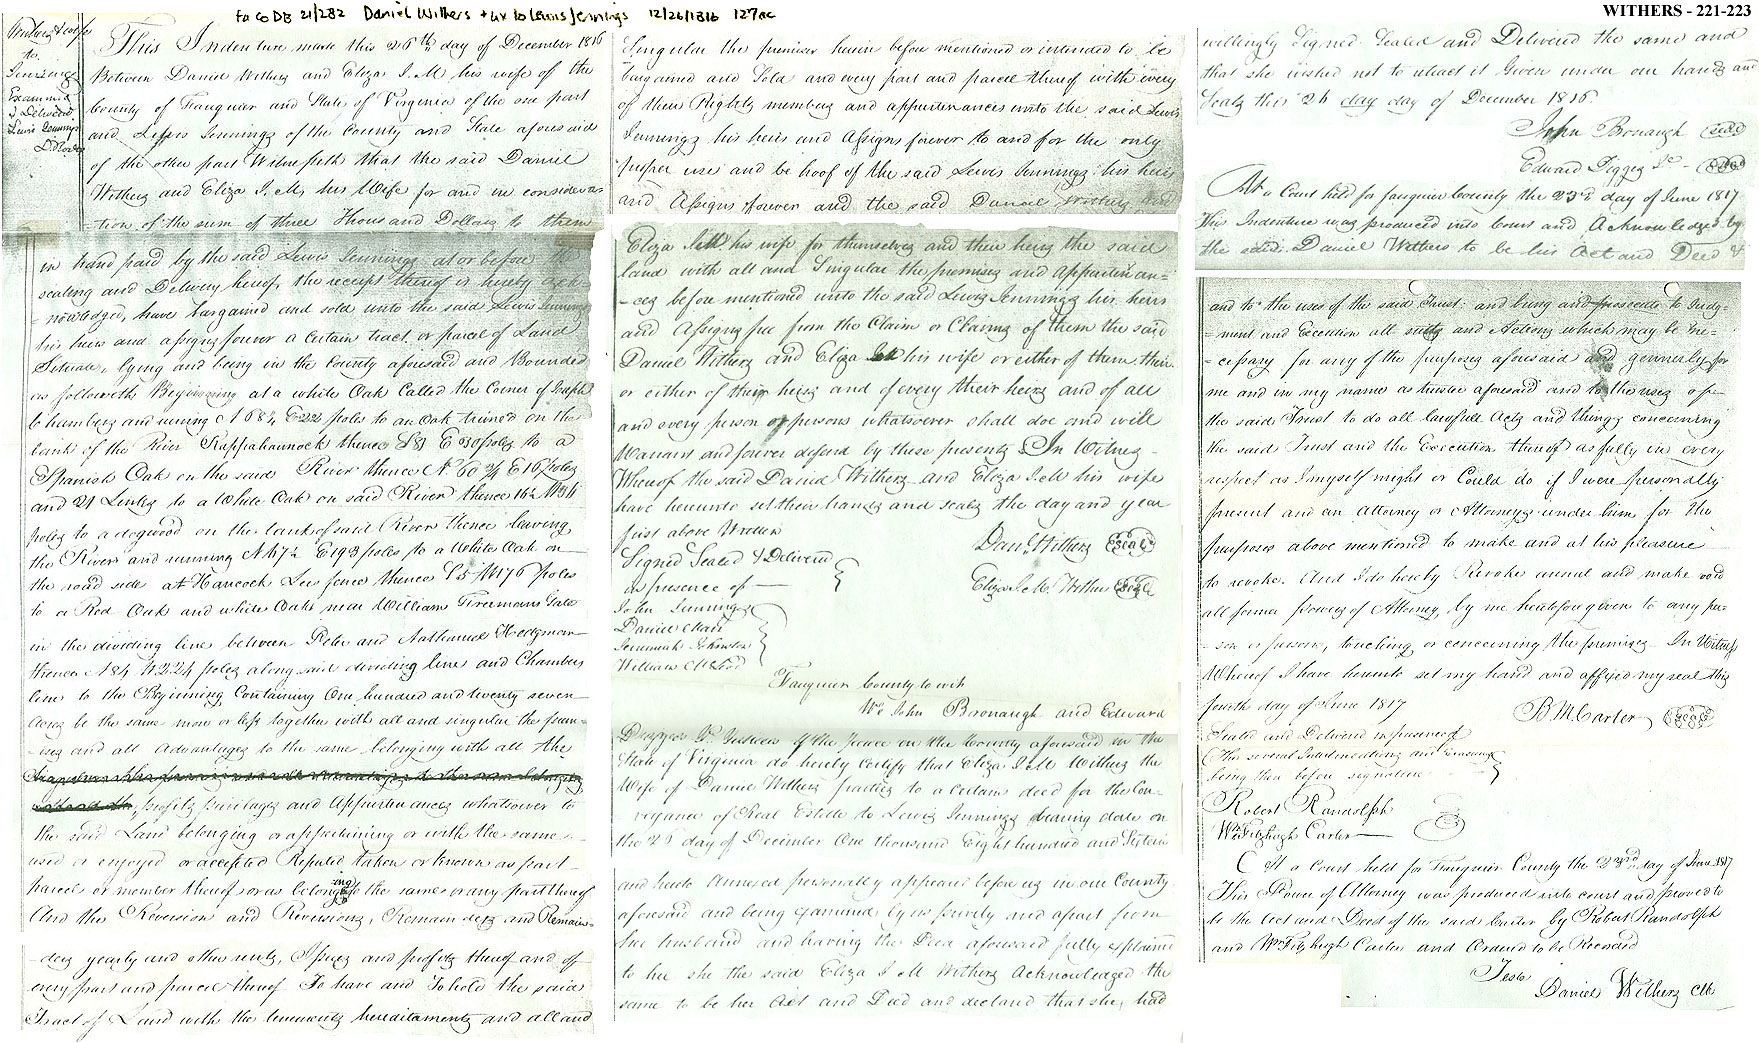 Fa Co DB 21/282 Daniel Withers + ux to Lewis Jennings 12/26/1816 127ac
WITHERS - 221-223
Withers & wife
to
Jennings
Examined
& Delivered
Lewis Jennings
This Indenture made this 26th day of December 1816
Between Daniel Withers and Eliza I. M his wife of the
County of Fauquier and State of Virginia of the one part
and Lewis Jennings of the County and State aforesaid
of the other part Witnesseth that the said Daniel
Withers and Eliza I. M. his Wife for and in considera=
=tion of the sum of three Thousand Dollars to them
in hand paid by the said Lewis Jennings at or before the
sealing and Delivery hereof, the receipt thereof is hereby ack=
=nowledged, have bargained and sold unto the said Lewis Jennings
his heirs and assigns forever a certain tract or parcel of Land
Situate, lying and being in the County aforesaid and Bounded
as followeth Beginning at a white Oak Called the Corner of Joseph
Chambers and runing N 68¼ E 222 poles to an Oak on the
bank of the River Rappahannock thence E poles to a
Spanish Oak on the said River thence N 60 ¾ E 167 poles
and 21 Links to a White Oak on said River thence
poles to a dogwood on the bank of said River thence leaving
the River and running E 193 poles to a White Oak on
the road side at Hancock Lees fence thence S 5 W 176 poles
to a Red Oak and white Oaks near William Freemans Gate
in the dividing line between Peter and Nathaniel Hedgman
thence N 84 W 224 poles along said dividing line and Chambers
line to the Beginning Containing One hundred and twenty seven
Acres be the same more or less together with all and singular the prem=
=ises and all advantages to the same belonging with all the
profits privileges and Appurtenances whatsoever to
the said Land belonging or appertaining or with the same
used or enjoyed or accepted Reputed taken or known as part
parcel or member thereof or as belonging to the same or any part thereof
And the Reversion and Reversions, Remainders and Remain=
=ders yearly and other rents, Issues and profits thereof and of
every part and parcel thereof To have and To hold the said
Tract of Land with the tenements hereditaments and all and
Singular the premises herein before mentioned or intended to be
bargained and Sold and every part and parcel thereof with every
of their Rights members and appurtenances unto the said Lewis
Jennings his heirs and Assigns forever to and for the only
proper use and be hoof of the said Lewis Jennings his heirs
and Assigns forever and the said Daniel Withers and
Eliza I. M. his wife for themselves and their heirs the said
land with all and Singular the premises and Appurtenan=
=ces before mentioned unto the said Lewis Jennings his heirs
and Assigns free from the Claim or Claims of them the said
Daniel Withers and Eliza his wife or either of them their
or either of their heirs and of every their heirs and of all
and every person or persons whatsoever shall doe and will
Warrant and forever defend by these presents In Witness
Whereof the said Daniel Withers and Eliza I. M his wife
have hereunto set their hands and seals the day and year
first above Written
Signed Sealed & Delivered
in presence of
Danl. Withers Seal
Eliza I. M. Withers Seal
John Jennings
Daniel Marr
Jeremiah Johnston
William
Fauquier County to wit
We John Bronaugh and Edward
Digges Jr Justices of the Peace in the County aforesaid in the
State of Virginia do hereby certify that Eliza I. M Withers the
Wife of Daniel Withers parties to a certain deed for the Con=
=veyance of Real Estate to Lewis Jennings bearing date on
the 26 day of December One thousand Eight hundred and Sixteen
and hereto Annexed personally appeared before us in our County
aforesaid and being examined by us privily and apart from
her husband and having the Deed aforesaid fully explained
to her she the said Eliza I M Withers Acknowledged the
same to be her Act and Deed and declared that she had
willingly Signed Sealed and Delivered the same and
that she wished not to retract it Given under our hands and
Seals this 26 day day of December 1816.
John Bronaugh Seal
Edward Digges Jr Seal
At a Court held for Fauquier County the 23rd day of June 1817
This Indenture was produced into Court and Acknowledged by
the said Daniel Withers to be his Act and Deed &
and to the uses of the said Trust: and bring and prosecute to Judg=
=ment and Execution all suits and Actions which may be ne=
=cessary for any of the purposes aforesaid and generally for
me and in my name as trustee aforesaid and to the uses of
the said Trust to do all lawfull Acts and things concerning
the said Trust and the Execution thereof as fully in every
respect as I myself might or Could do if I were personally
present and an Attorney or Attorneys under him for the
purposes above mentioned to make and at his pleasure
to revoke. And I do hereby Revoke annul and make void
all former powers of Attorney, by me heretofore given to any per=
=son or persons, touching or concerning the premises In Witness
Whereof I have hereunto set my hand and affixed my seal this
fourth day of June 1817
B. M. Carter Seal
Sealed and Delivered in presence of
the several Interlineations and erasures
being then before signature
Robert Randolph
Wm Fitzhugh Carter
At a Court held for Fauquier County the 23rd day of June 1817
This Power of Attorney was produced into court and proved to
be the Act and Deed of the said Carter by Robert Randolph
and Wm Fitzhugh Carter and Ordered to be Record
Teste
Daniel Withers